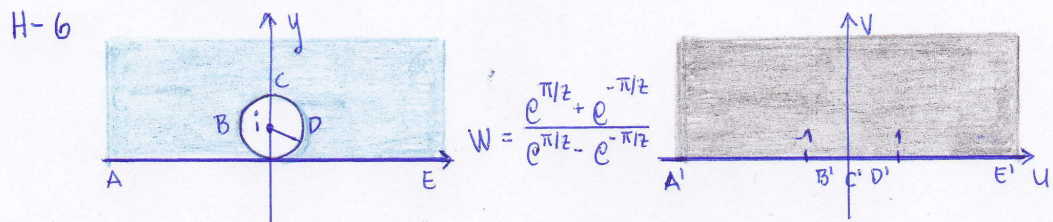 H-6
y
C
B
i
D
A
E
W = \frac{e^{π/z} + e^{-π/z}}{e^{π/z} - e^{-π/z}}
V
-1
1
B'
C'
D'
A'
E'
U